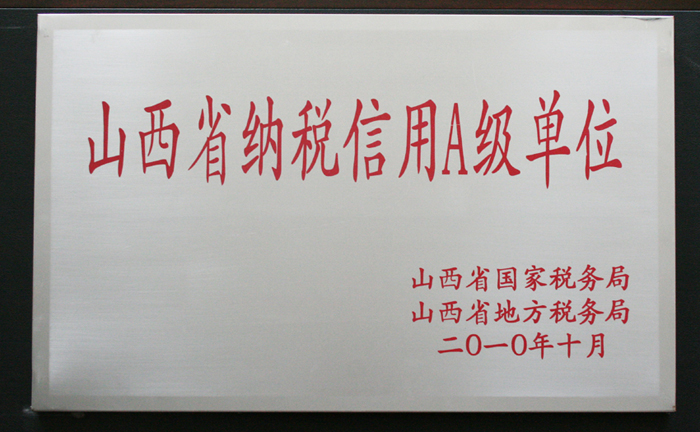 山西省纳税信用A级单位
山西省国家税务局
山西省地方税务局
二〇一〇年十月